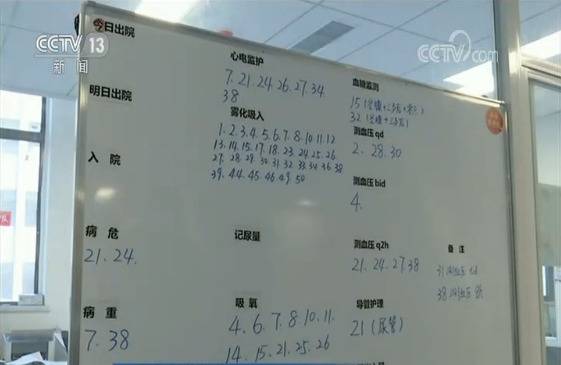 CCTV 13
新闻
CCTV.com
今日出院
明日出院
入 院
病 危
21.24.
病 重
7.38
心电监护
7.21.24.26.27.34.
38
雾化吸入
1.2.3.4.5.6.7.8.10.11.12
13.14.15.17.18.23.24.25.26
27.28.29.30.31.32.33.34.36.38
39.44.45.46.49.50
记尿量
吸 氧
4.6.7.8.10.11.
14.15.21.25.26
血糖监测
15
32
测血压 qd
2.28.30
测血压 bid
4.
测血压 q2h
21.24.27.38
导管护理
21(尿管)
备 注
31 测血压
38 测血压